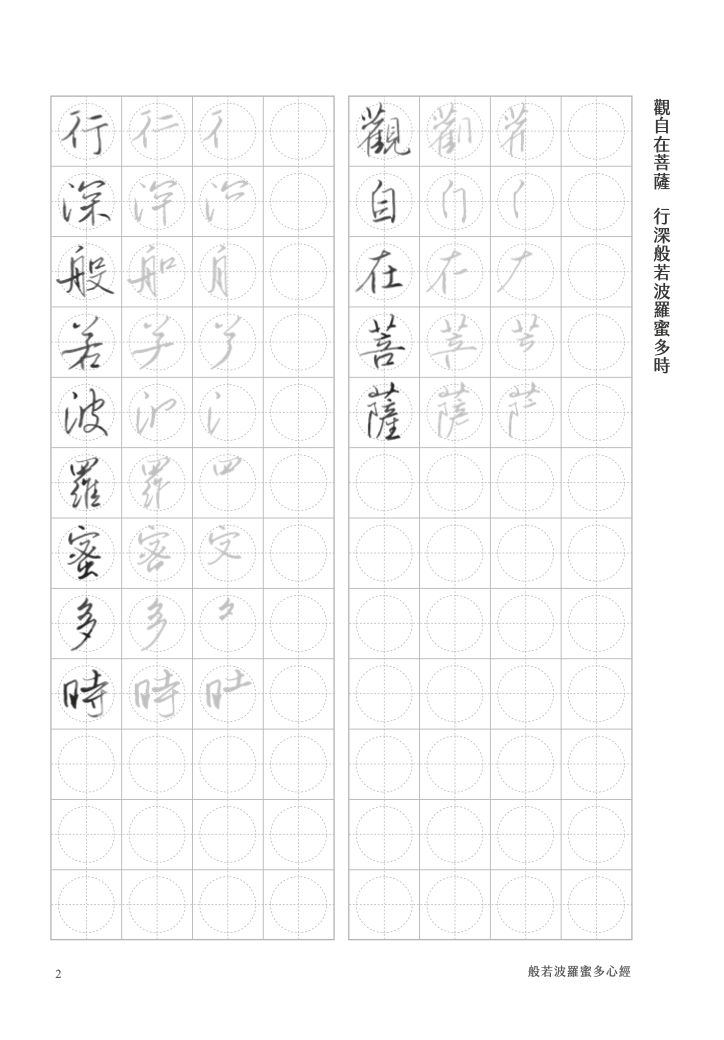 觀自在菩薩　行深般若波羅蜜多時
觀自在菩薩
行深般若波羅蜜多時
般若波羅蜜多心經
2